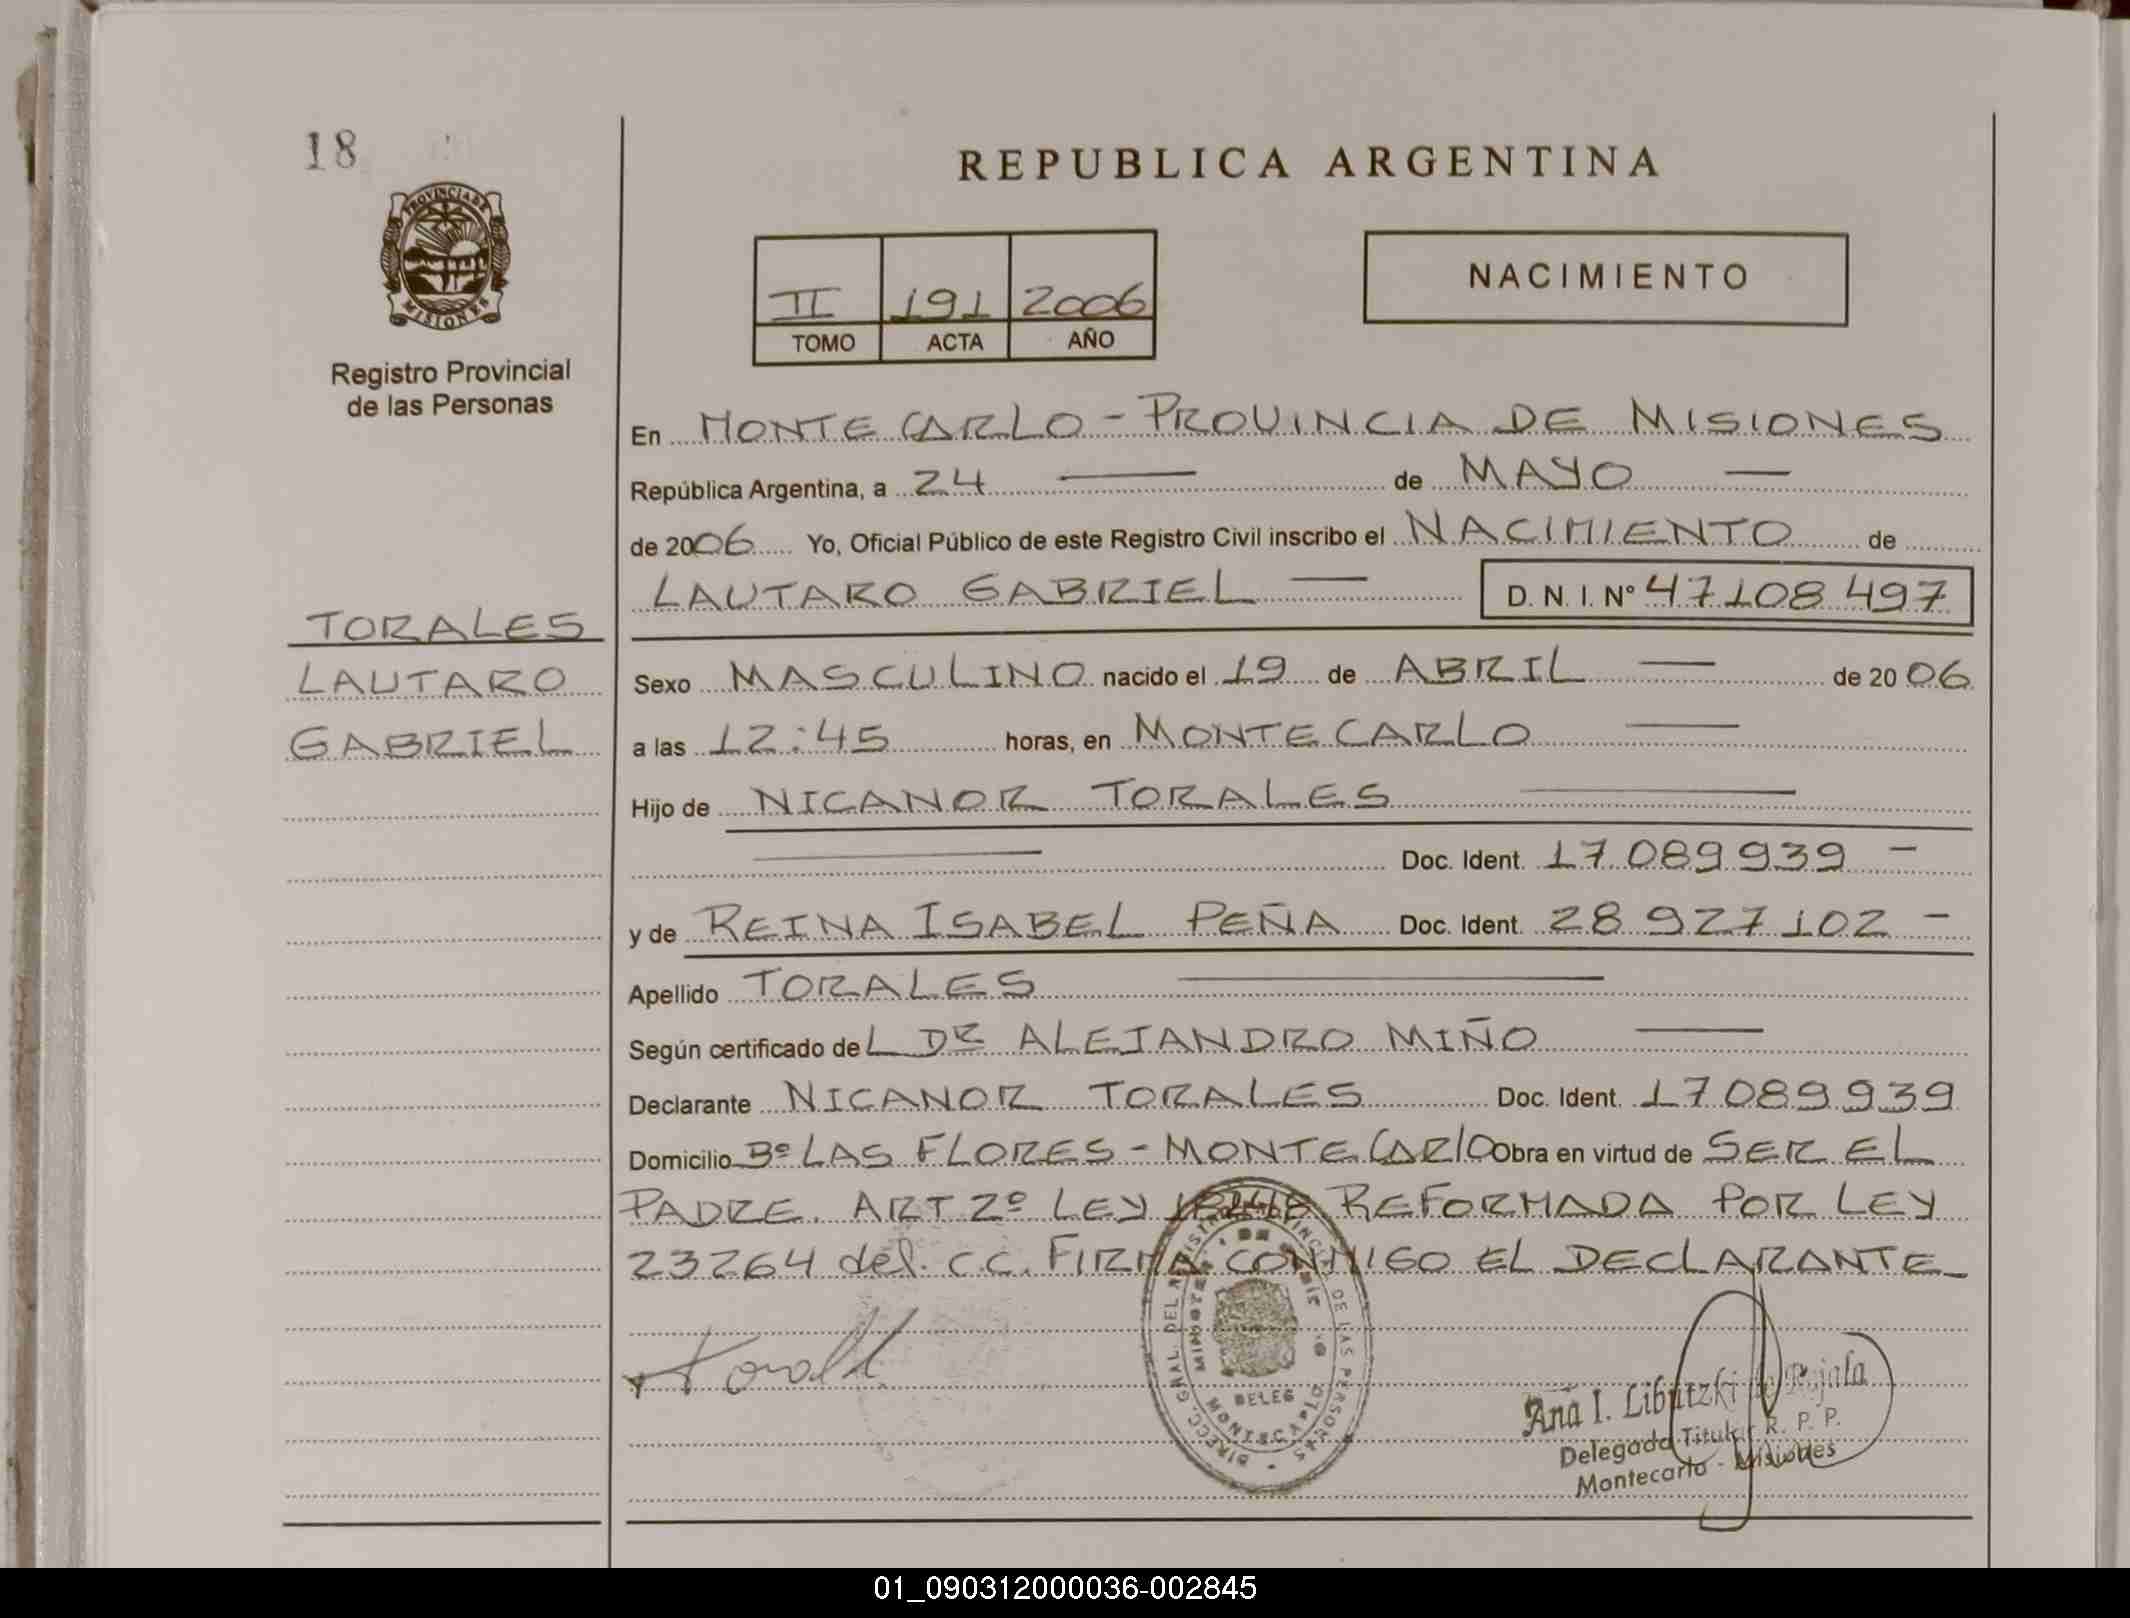 18
PROVINCIA DE
MISIONES
Registro Provincial
de las Personas
TORALES
LAUTARO
GABRIEL
REPUBLICA ARGENTINA
II 191 2006
TOMO ACTA AÑO
NACIMIENTO
En MONTECARLO - PROVINCIA DE MISIONES
República Argentina, a 24 — de MAYO —
de 2006 Yo, Oficial Público de este Registro Civil inscribo el NACIMIENTO de
LAUTARO GABRIEL — D. N. I. Nº 47108497
Sexo MASCULINO nacido el 19 de ABRIL — de 2006
a las 12:45 horas, en MONTECARLO —
Hijo de NICANOR TORALES —
— Doc. Ident. 17089939 -
y de REINA ISABEL PEÑA Doc. Ident. 28927102 -
Apellido TORALES —
Según certificado deL DR ALEJANDRO MIÑO —
Declarante NICANOR TORALES Doc. Ident. 17089939
Domicilio Bº LAS FLORES - MONTECARLO Obra en virtud de SER EL
PADRE. ART 2º LEY REFORMADA POR LEY
23264 del. C.C. FIRMA CONMIGO EL DECLARANTE_
DELEG
Ana I. Libutzki de Rojala
Delegada Titular R. P. P.
Montecarlo - Misiones
01_090312000036-002845